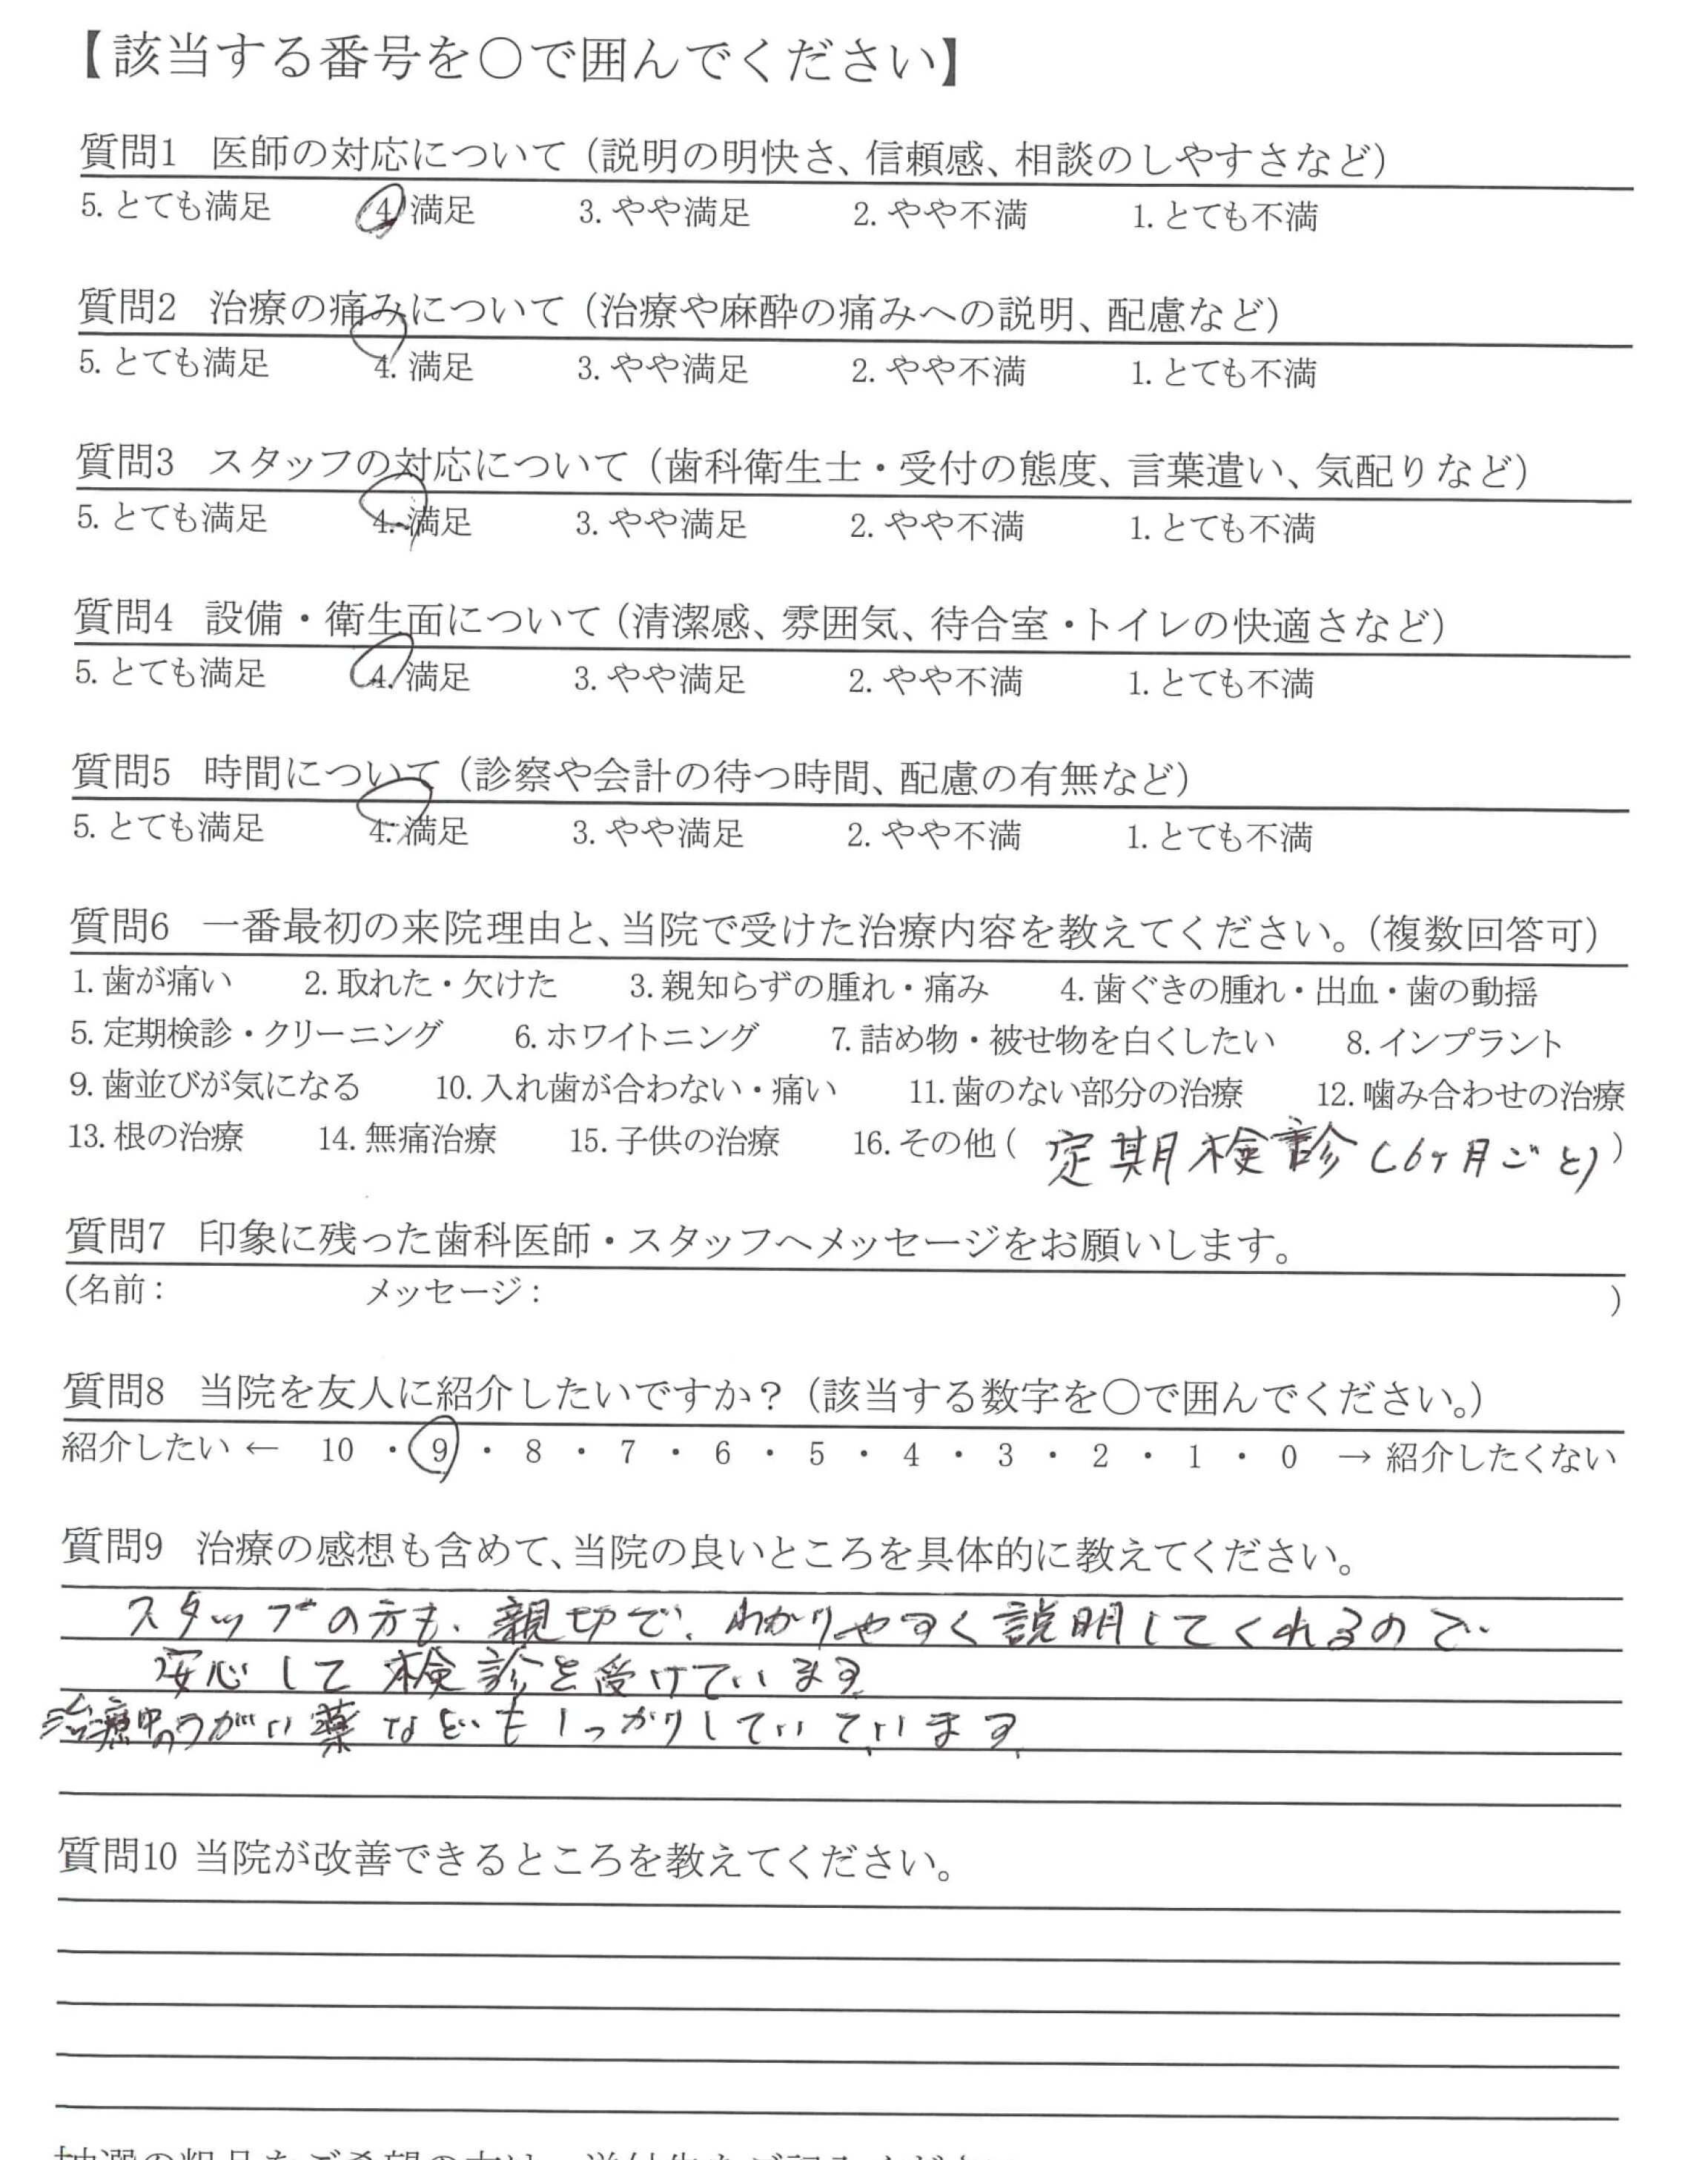 【該当する番号を〇で囲んでください】
質問1 医師の対応について（説明の明快さ、信頼感、相談のしやすさなど）
5. とても満足 4. 満足 3. やや満足 2. やや不満 1. とても不満
質問2 治療の痛みについて（治療や麻酔の痛みへの説明、配慮など）
5. とても満足 4. 満足 3. やや満足 2. やや不満 1. とても不満
質問3 スタッフの対応について（歯科衛生士・受付の態度、言葉遣い、気配りなど）
5. とても満足 4. 満足 3. やや満足 2. やや不満 1. とても不満
質問4 設備・衛生面について（清潔感、雰囲気、待合室・トイレの快適さなど）
5. とても満足 4. 満足 3. やや満足 2. やや不満 1. とても不満
質問5 時間について（診察や会計の待つ時間、配慮の有無など）
5. とても満足 4. 満足 3. やや満足 2. やや不満 1. とても不満
質問6 一番最初の来院理由と、当院で受けた治療内容を教えてください。（複数回答可）
1. 歯が痛い 2. 取れた・欠けた 3. 親知らずの腫れ・痛み 4. 歯ぐきの腫れ・出血・歯の動揺
5. 定期検診・クリーニング 6. ホワイトニング 7. 詰め物・被せ物を白くしたい 8. インプラント
9. 歯並びが気になる 10. 入れ歯が合わない・痛い 11. 歯のない部分の治療 12. 噛み合わせの治療
13. 根の治療 14. 無痛治療 15. 子供の治療 16. その他（定期検診（6ヶ月ごと））
質問7 印象に残った歯科医師・スタッフへメッセージをお願いします。
（名前： メッセージ： ）
質問8 当院を友人に紹介したいですか？（該当する数字を〇で囲んでください。）
紹介したい ← 10 ・ 9 ・ 8 ・ 7 ・ 6 ・ 5 ・ 4 ・ 3 ・ 2 ・ 1 ・ 0 → 紹介したくない
質問9 治療の感想も含めて、当院の良いところを具体的に教えてください。
スタッフの方も、親切で、わかりやすく説明してくれるので
安心して検診を受けています
治療中のうがい薬などもしっかりしていています。
質問10 当院が改善できるところを教えてください。